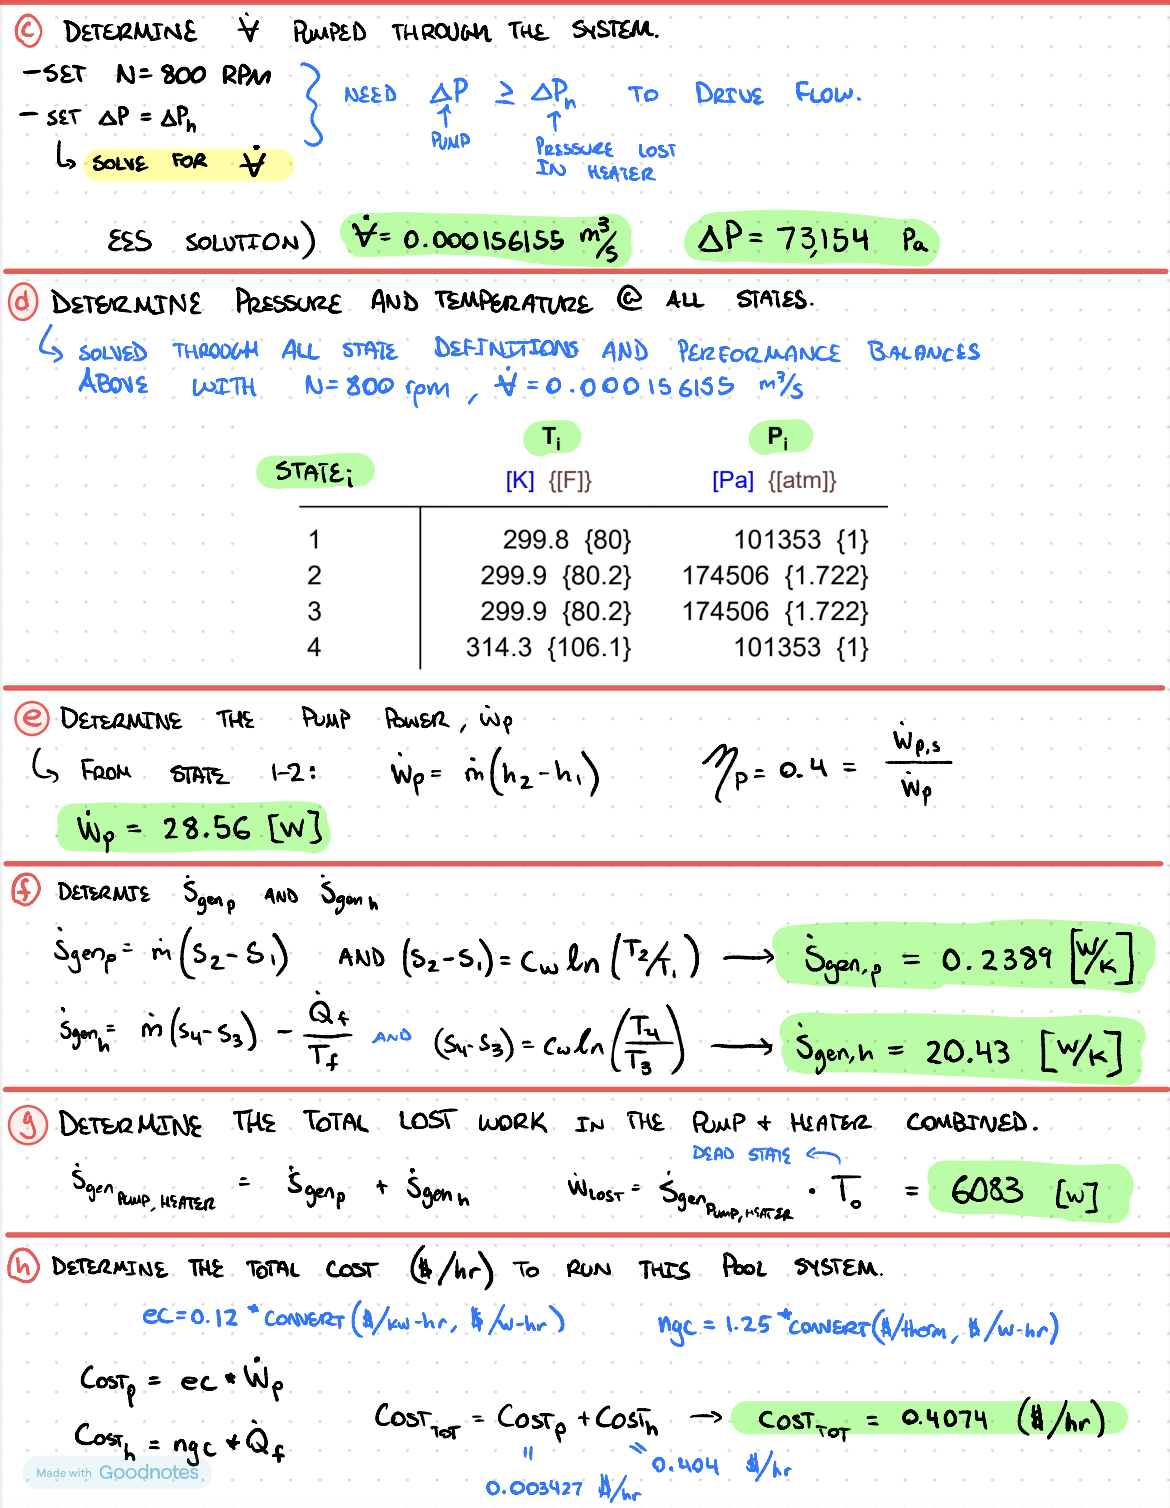 ⓒ DETERMINE V̇ PUMPED THROUGH THE SYSTEM.
- SET N = 800 RPM
- SET ΔP = ΔPh
NEED ΔP ≥ ΔPh TO DRIVE FLOW.
PUMP
PRESSURE LOST
IN HEATER
↳ SOLVE FOR V̇
EES SOLUTION) V̇ = 0.000156155 m³/s ΔP = 73,154 Pa
ⓓ DETERMINE PRESSURE AND TEMPERATURE @ ALL STATES.
↳ SOLVED THROUGH ALL STATE DEFINITIONS AND PERFORMANCE BALANCES
ABOVE WITH N = 800 rpm, V̇ = 0.000156155 m³/s
STATEi Ti Pi
[K] {[F]} [Pa] {[atm]}
1 299.8 {80} 101353 {1}
2 299.9 {80.2} 174506 {1.722}
3 299.9 {80.2} 174506 {1.722}
4 314.3 {106.1} 101353 {1}
ⓔ DETERMINE THE PUMP POWER, Ẇp
↳ FROM STATE 1-2: Ẇp = ṁ(h2 - h1) ηp = 0.4 = Ẇp,s / Ẇp
Ẇp = 28.56 [W]
ⓕ DETERMTE Ṡgenp AND Ṡgenh
Ṡgenp = ṁ(S2 - S1) AND (S2 - S1) = Cw ln(T2/T1) → Ṡgen,p = 0.2389 [W/K]
Ṡgenh = ṁ(S4 - S3) - Q̇f / Tf AND (S4 - S3) = Cw ln(T4/T3) → Ṡgen,h = 20.43 [W/K]
ⓖ DETERMINE THE TOTAL LOST WORK IN THE PUMP + HEATER COMBINED.
DEAD STATE ←
Ṡgen PUMP, HEATER = Ṡgenp + Ṡgenh ẆLOST = Ṡgen PUMP, HEATER · To = 6083 [W]
ⓗ DETERMINE THE TOTAL COST ($/hr) TO RUN THIS POOL SYSTEM.
ec = 0.12 * CONVERT($/kw-hr, $/w-hr) ngc = 1.25 * CONVERT($/therm, $/w-hr)
COSTp = ec * Ẇp
COSTh = ngc * Q̇f
COSTTOT = COSTp + COSTh → COSTTOT = 0.4074 ($/hr)
0.003427 $/hr
0.404 $/hr
Made with Goodnotes